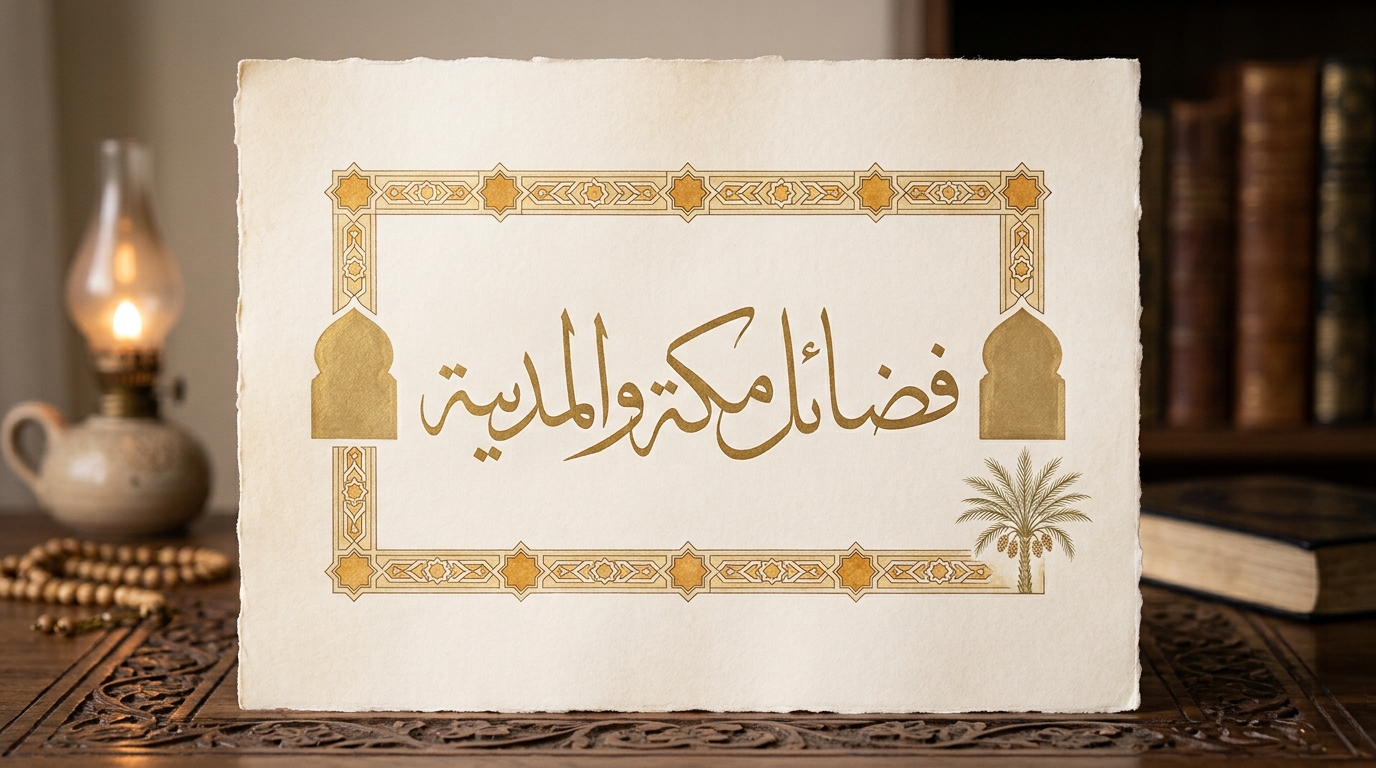 فضائل مكة والمدينة